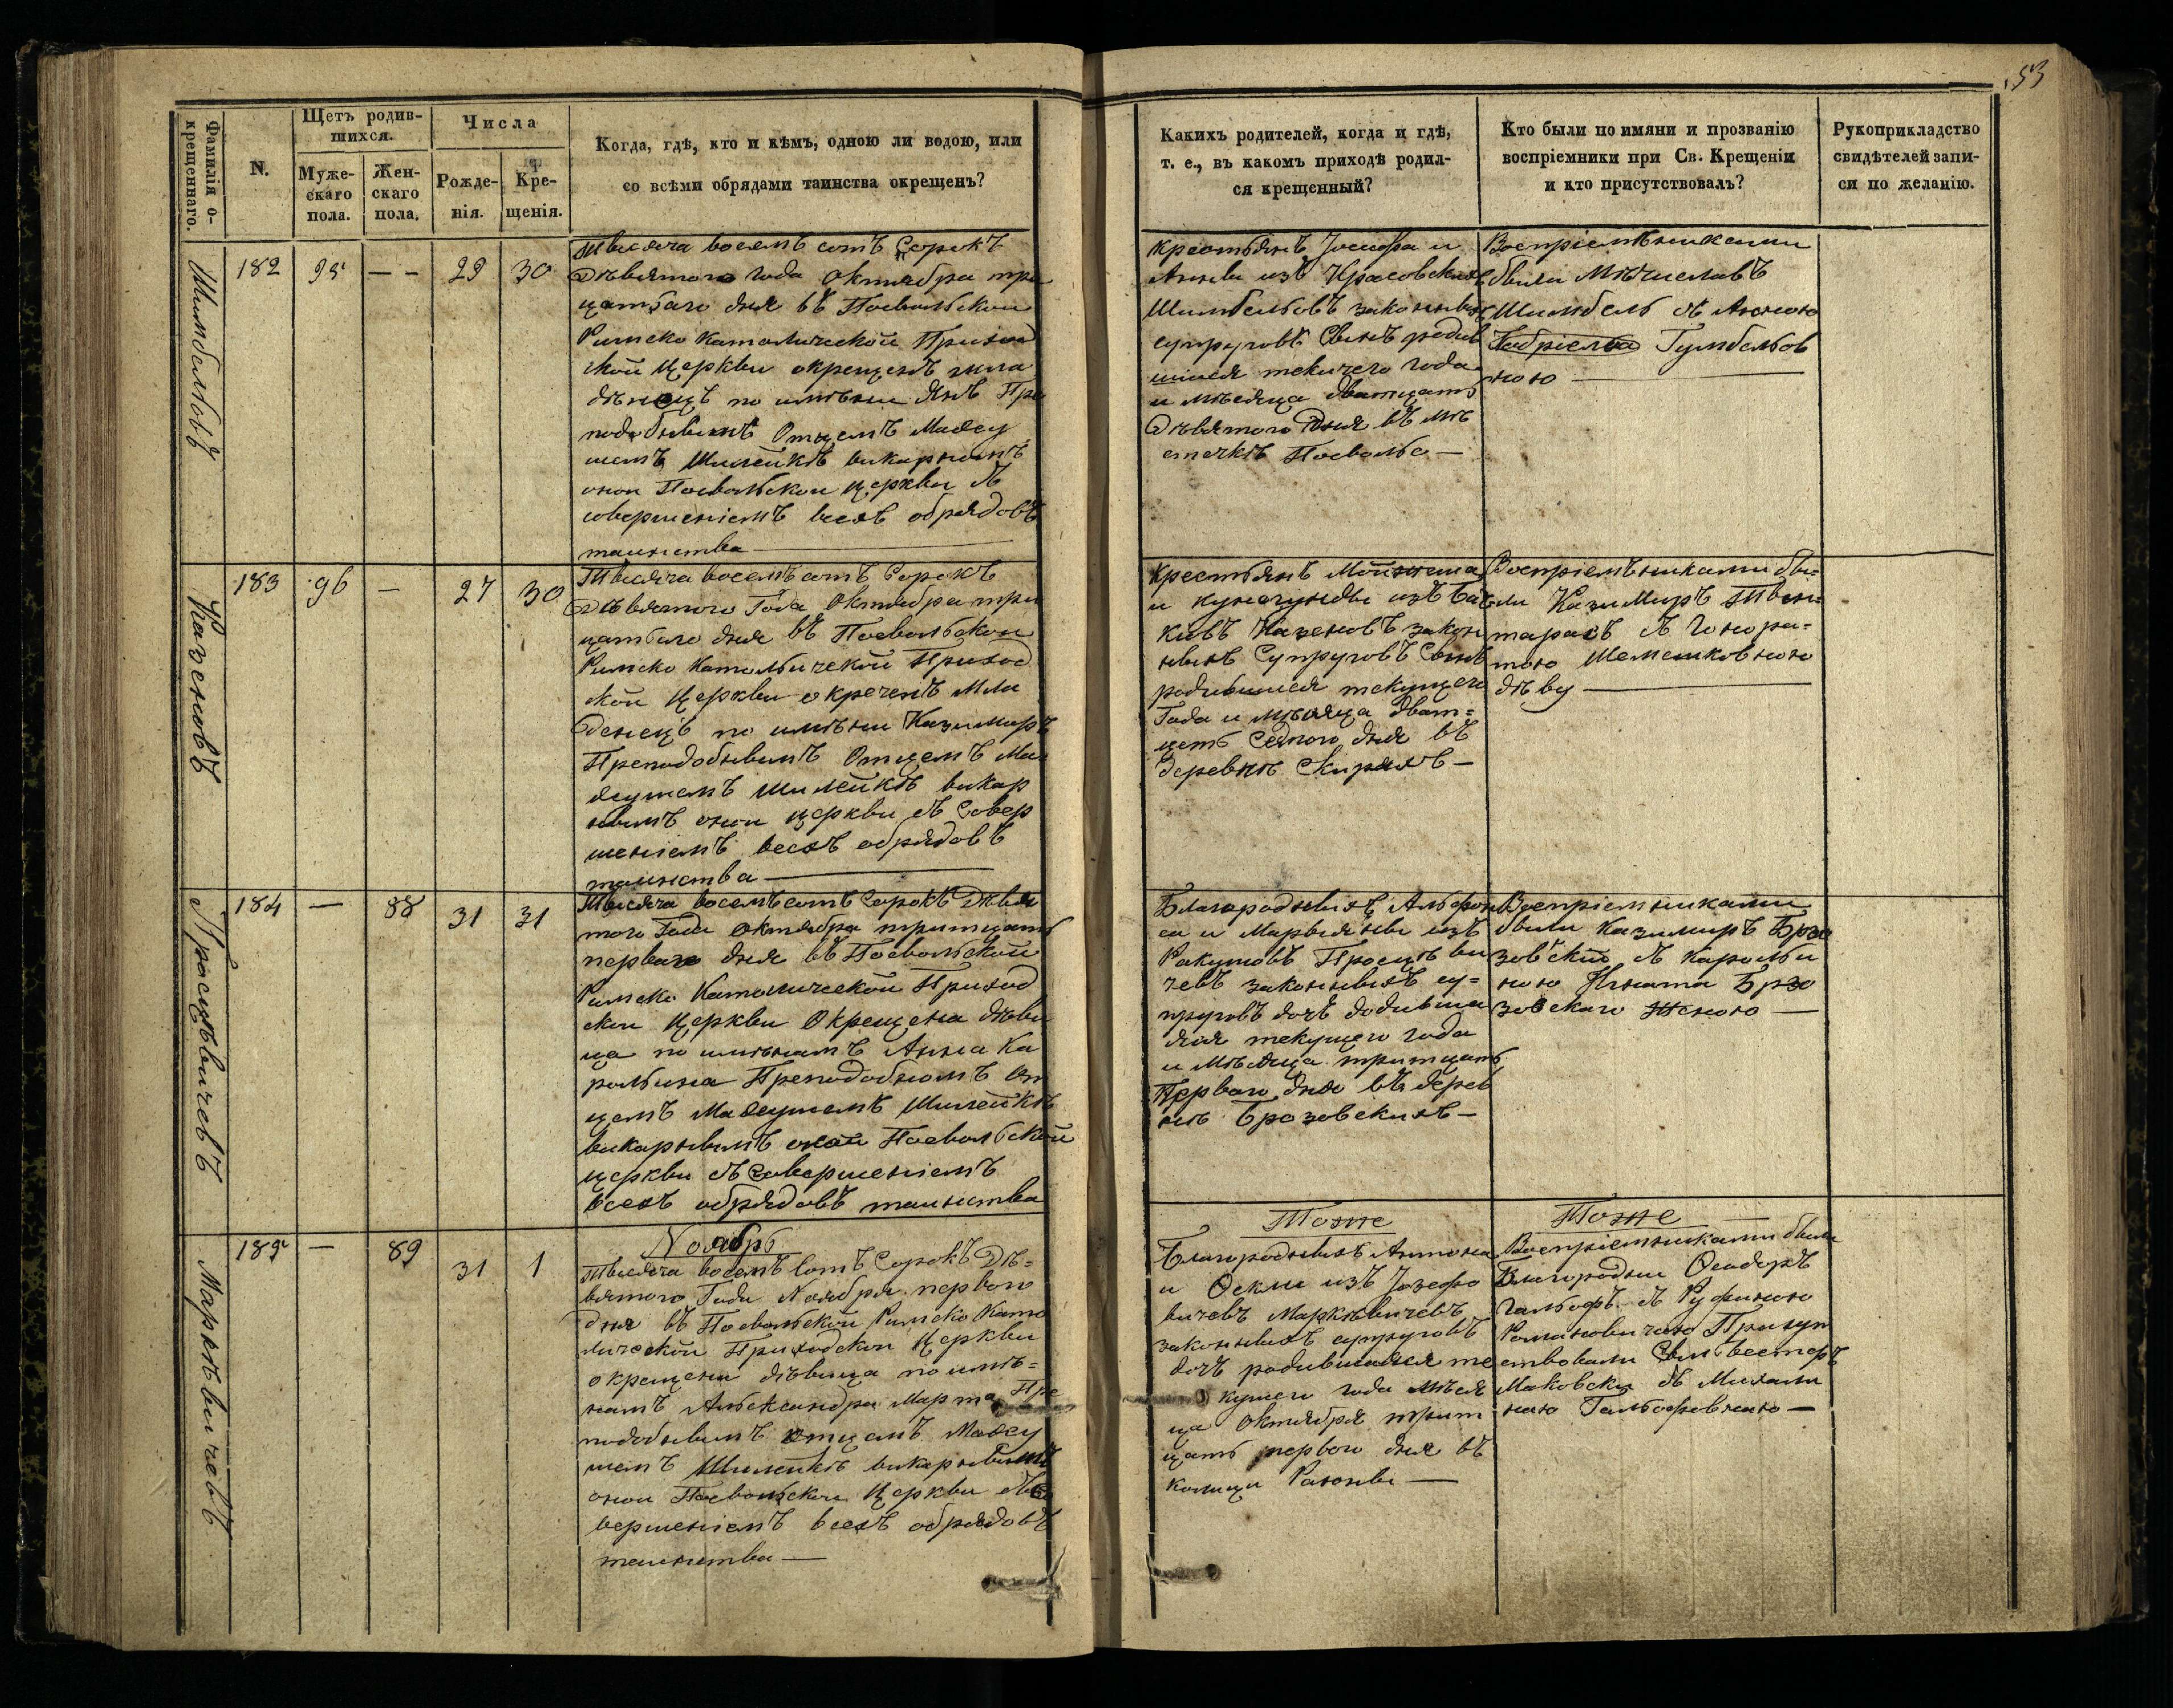 53
Фамилія о-
крещеннаго.
N.
Щетъ родив-
шихся.
Муже-
скаго
пола.
Жен-
скаго
пола.
Числа
Рожде-
нія.
Кре-
щенія.
Когда, гдѣ, кто и кѣмъ, одною ли водою, или
со всѣми обрядами таинства окрещенъ?
Какихъ родителей, когда и гдѣ,
т. е., въ какомъ приходѣ родил-
ся крещенный?
Кто были по имяни и прозванію
воспріемники при Св. Крещеніи
и кто присутствовалъ?
Рукоприкладство
свидѣтелей запи-
си по желанію.
Шимбельовъ
182 95 — — 29 30
Тысяча восемъ сотъ Сорокъ
Дѣвятого года Октября три
цатьаго дня въ Посвольской
Римско Католической Приход
ской Церкви окрещенъ мла
дѣнецъ по имѣни Янъ Пре
подобнымъ Отцемъ
Шилейкѣ викарнымъ
оной Посвольской Церкви съ
совершеніемъ всехъ обрядовъ
таинства —
Крестьянъ Іосифа и
Анны изъ Красовскихъ
Шимбельовъ законныхъ
супруговъ Сынъ родив
шійся текучего года
и мѣсяца дватцать
Дѣвятого Дня въ мѣ
стечкѣ Посволѣ —
Воспріемѣниками
были Мѣчиславъ
Шимбель съ Анною
Габріела Гумбельов
ною —
Казеновъ
183 96 — 27 30
Тысяча восемъ сотъ Сорокъ
Дѣвятого Года Октября три
цатьаго дня въ Посвольской
Римско Католической Приход
ской Церкви окреченъ Мла
денецъ по имѣни Казимиръ
Преподобнымъ Отцемъ Ма
Шилейкѣ викар
нымъ оной церкви съ Совер
шеніемъ всехъ обрядовъ
таинства —
Крестьянъ
и Кунегунды изъ
Казеновъ закон
ныхъ Супруговъ Сынъ
родившійся текущего
Года и мѣсяца дват=
цать Седмого дня въ
деревнѣ —
Воспріемѣниками бы=
ли Казимиръ
съ Гонора=
тою Шемешковною
дѣву —
Просцѣвичевъ
184 — 88 31 31
Тысяча восемъ сотъ Сорокъ Дѣвя
того Года Октября тритцать
первого дня въ Посвольской
Римско Католической Приход
ской Церкви Окрещена дѣви
ца по имѣнамъ Анна Ка
ролина Преподобномъ От
цемъ Шилейкѣ
викарнымъ оной Посвольской
церкви съ Совершеніемъ
всехъ обрядовъ таинства
Благородныхъ Альфон
са и Марьяны изъ
Ракутовъ Просцѣви
чевъ законныхъ су=
пруговъ дочъ родивша
яся текущего года
и Мѣсяца тритцать
Первого дня въ дерев
нѣ Брозовскихъ —
Воспріемниками
были Казимиръ Брзо
зовскій съ Каролы
ною Игната Брзо
зовскаго Женою —
Маркѣвичевъ
185 — 89 31 1
Ноябрь
Тысяча восемъ Сотъ Сорокъ Дѣ=
вятого Года Ноября первого
дня въ Посвольской Римско Като
лической Приходской Церкви
окрещена дѣвица по имѣ=
намъ Александра Марта Пре
подобнымъ отцемъ
Шилейкѣ викарнымъ
оной Посвольской Церкви съ Со
вершеніемъ всехъ обрядовъ
таинства —
Тоже
Благородныхъ Антона
и изъ Іозефо
вичевъ Маркѣвичевъ
законныхъ супруговъ
дочъ родившаяся те
кущего года мѣся
ца Октября трит
цать первого дня въ
—
Тоже —
Воспріемниками были
Благородни
съ Руфиною
Романовичевою Присут
ствовали Сылвестеръ
Маковски съ
—